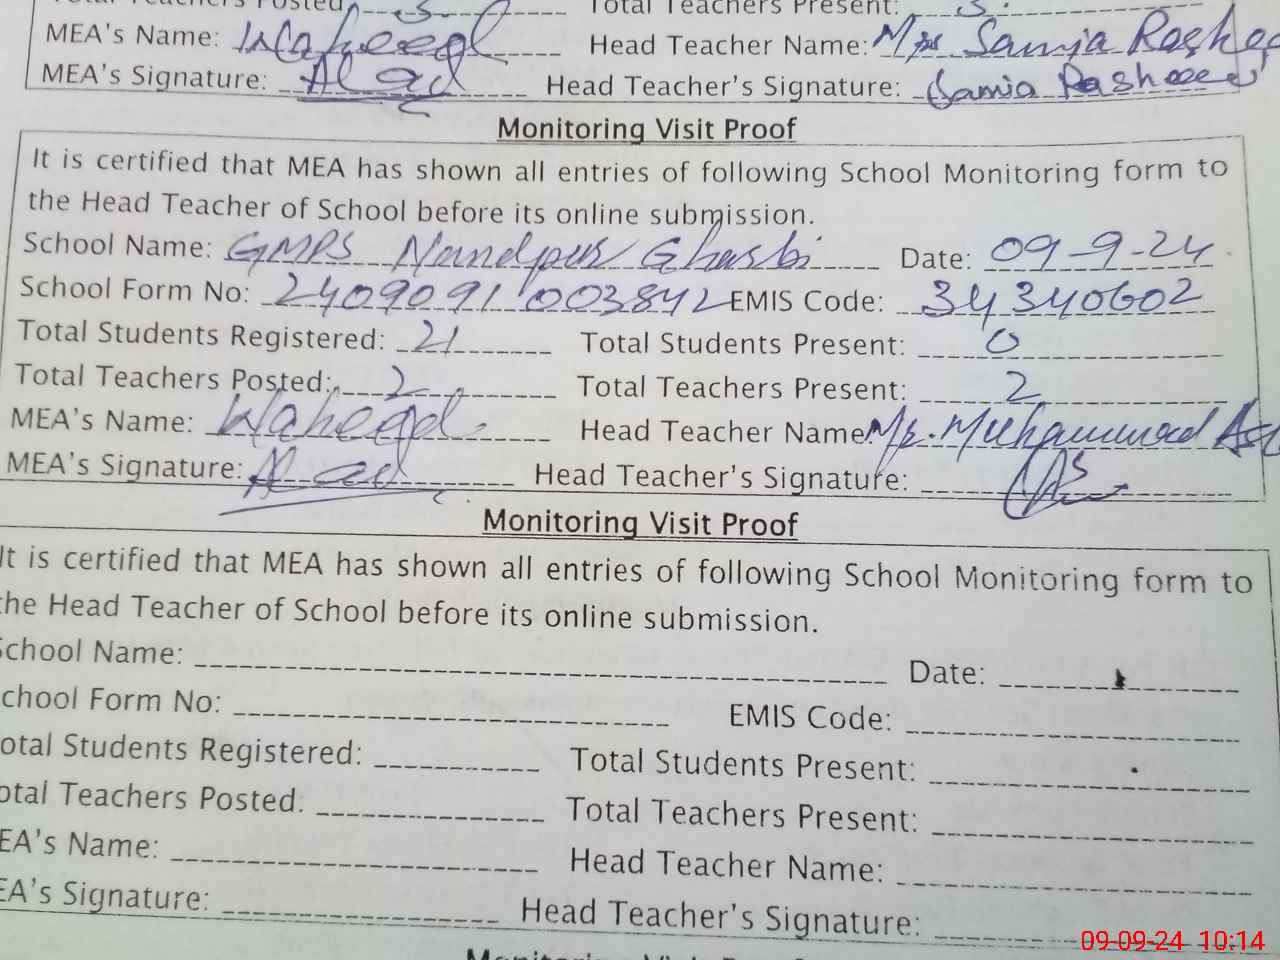 Total Teachers Posted 3 Total Teachers Present: 3
MEA's Name: Waheed Head Teacher Name: Mrs Samia Rashee
MEA's Signature: Head Teacher's Signature: Samia Rasheed
Monitoring Visit Proof
It is certified that MEA has shown all entries of following School Monitoring form to
the Head Teacher of School before its online submission.
School Name: GMPS Nandpur Gharbi Date: 09-9-24
School Form No: 2409091003842 EMIS Code: 34340602
Total Students Registered: 21 Total Students Present: 0
Total Teachers Posted: 2 Total Teachers Present: 2
MEA's Name: Waheed Head Teacher Name Mr. Muhammad
MEA's Signature: Head Teacher's Signature:
Monitoring Visit Proof
It is certified that MEA has shown all entries of following School Monitoring form to
the Head Teacher of School before its online submission.
School Name: Date:
School Form No: EMIS Code:
otal Students Registered: Total Students Present:
otal Teachers Posted: Total Teachers Present:
EA's Name: Head Teacher Name:
EA's Signature: Head Teacher's Signature:
Monitoring Visit Proof
09-09-24 10:14